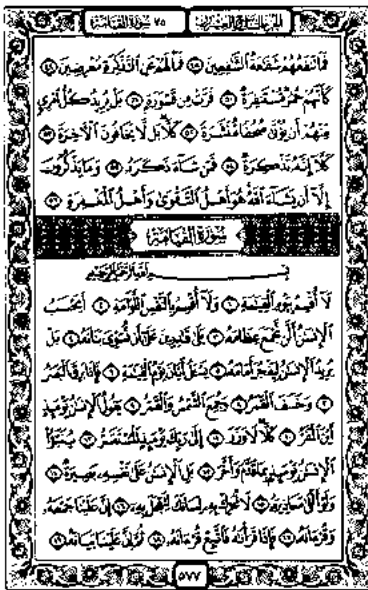 الجزء التاسع والعشرون
٧٥ سورة القيامة
فَمَا تَنفَعُهُمْ شَفَٰعَةُ ٱلشَّٰفِعِينَ ٤٨ فَمَا لَهُمْ عَنِ ٱلتَّذْكِرَةِ مُعْرِضِينَ ٤٩
كَأَنَّهُمْ حُمُرٌ مُّسْتَنفِرَةٌ ٥٠ فَرَّتْ مِن قَسْوَرَةٍ ٥١ بَلْ يُرِيدُ كُلُّ ٱمْرِئٍ
مِّنْهُمْ أَن يُؤْتَىٰ صُحُفًا مُّنَشَّرَةً ٥٢ كَلَّا بَل لَّا يَخَافُونَ ٱلْءَاخِرَةَ ٥٣
كَلَّا إِنَّهُۥ تَذْكِرَةٌ ٥٤ فَمَن شَآءَ ذَكَرَهُۥ ٥٥ وَمَا يَذْكُرُونَ
إِلَّا أَن يَشَآءَ ٱللَّهُ هُوَ أَهْلُ ٱلتَّقْوَىٰ وَأَهْلُ ٱلْمَغْفِرَةِ ٥٦
سورة القيامة
بِسْمِ ٱللَّهِ ٱلرَّحْمَٰنِ ٱلرَّحِيمِ
لَا أُقْسِمُ بِيَوْمِ ٱلْقِيَٰمَةِ ١ وَلَا أُقْسِمُ بِٱلنَّفْسِ ٱللَّوَّامَةِ ٢ أَيَحْسَبُ
ٱلْإِنسَٰنُ أَلَّن نَّجْمَعَ عِظَامَهُۥ ٣ بَلَىٰ قَٰدِرِينَ عَلَىٰ أَن نُّسَوِّيَ بَنَانَهُۥ ٤ بَلْ
يُرِيدُ ٱلْإِنسَٰنُ لِيَفْجُرَ أَمَامَهُۥ ٥ يَسْـَٔلُ أَيَّانَ يَوْمُ ٱلْقِيَٰمَةِ ٦ فَإِذَا بَرِقَ ٱلْبَصَرُ
٧ وَخَسَفَ ٱلْقَمَرُ ٨ وَجُمِعَ ٱلشَّمْسُ وَٱلْقَمَرُ ٩ يَقُولُ ٱلْإِنسَٰنُ يَوْمَئِذٍ
أَيْنَ ٱلْمَفَرُّ ١٠ كَلَّا لَا وَزَرَ ١١ إِلَىٰ رَبِّكَ يَوْمَئِذٍ ٱلْمُسْتَقَرُّ ١٢ يُنَبَّؤُا۟
ٱلْإِنسَٰنُ يَوْمَئِذٍۭ بِمَا قَدَّمَ وَأَخَّرَ ١٣ بَلِ ٱلْإِنسَٰنُ عَلَىٰ نَفْسِهِۦ بَصِيرَةٌ ١٤
وَلَوْ أَلْقَىٰ مَعَاذِيرَهُۥ ١٥ لَا تُحَرِّكْ بِهِۦ لِسَانَكَ لِتَعْجَلَ بِهِۦ ١٦ إِنَّ عَلَيْنَا جَمْعَهُۥ
وَقُرْءَانَهُۥ ١٧ فَإِذَا قَرَأْنَٰهُ فَٱتَّبِعْ قُرْءَانَهُۥ ١٨ ثُمَّ إِنَّ عَلَيْنَا بَيَانَهُۥ ١٩
٥٧٧